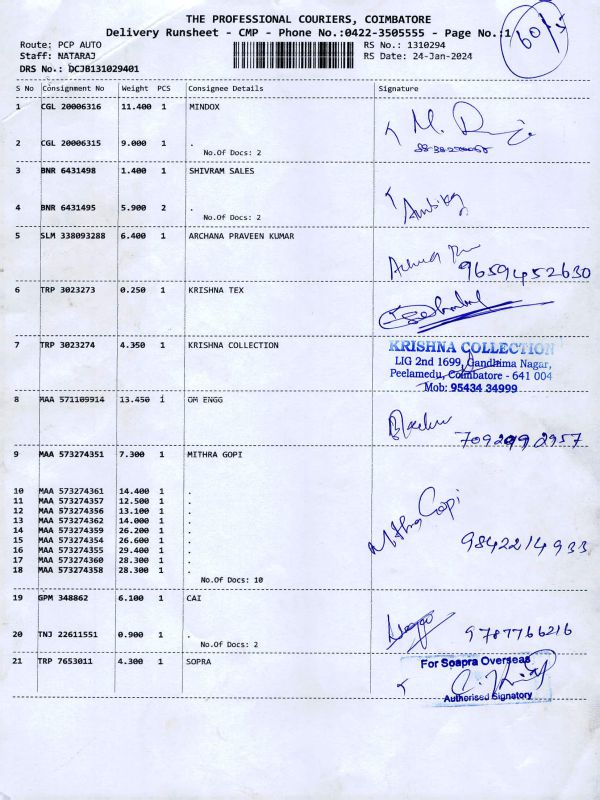 THE PROFESSIONAL COURIERS, COIMBATORE
Delivery Runsheet - CMP - Phone No.:0422-3505555 - Page No.:1
Route: PCP AUTO RS No.: 1310294
Staff: NATARAJ RS Date: 24-Jan-2024
DRS No.: DCJB131029401
S No Consignment No Weight PCS Consignee Details Signature
1 CGL 20006316 11.400 1 MINDOX
2 CGL 20006315 9.000 1 .
No.Of Docs: 2
3 BNR 6431498 1.400 1 SHIVRAM SALES
4 BNR 6431495 5.900 2 .
No.Of Docs: 2
5 SLM 338093288 6.400 1 ARCHANA PRAVEEN KUMAR
9659452630
6 TRP 3023273 0.250 1 KRISHNA TEX
7 TRP 3023274 4.350 1 KRISHNA COLLECTION
KRISHNA COLLECTION
LIG 2nd 1699, Gandhima Nagar,
Peelamedu, Coimbatore - 641 004
Mob: 95434 34999
8 MAA 571109914 13.450 1 OM ENGG
9 MAA 573274351 7.300 1 MITHRA GOPI
10 MAA 573274361 14.400 1 .
11 MAA 573274357 12.500 1 .
12 MAA 573274356 13.100 1 .
13 MAA 573274362 14.000 1 .
14 MAA 573274359 26.200 1 .
15 MAA 573274354 26.600 1 .
16 MAA 573274355 29.400 1 .
17 MAA 573274360 28.300 1 .
18 MAA 573274358 28.300 1 .
No.Of Docs: 10
Mithra Gopi
9842214933
19 GPM 348862 6.100 1 CAI
20 TNJ 22611551 0.900 1 .
No.Of Docs: 2
9787766216
21 TRP 7653011 4.300 1 SOPRA
For Soapra Overseas
Authorised Signatory